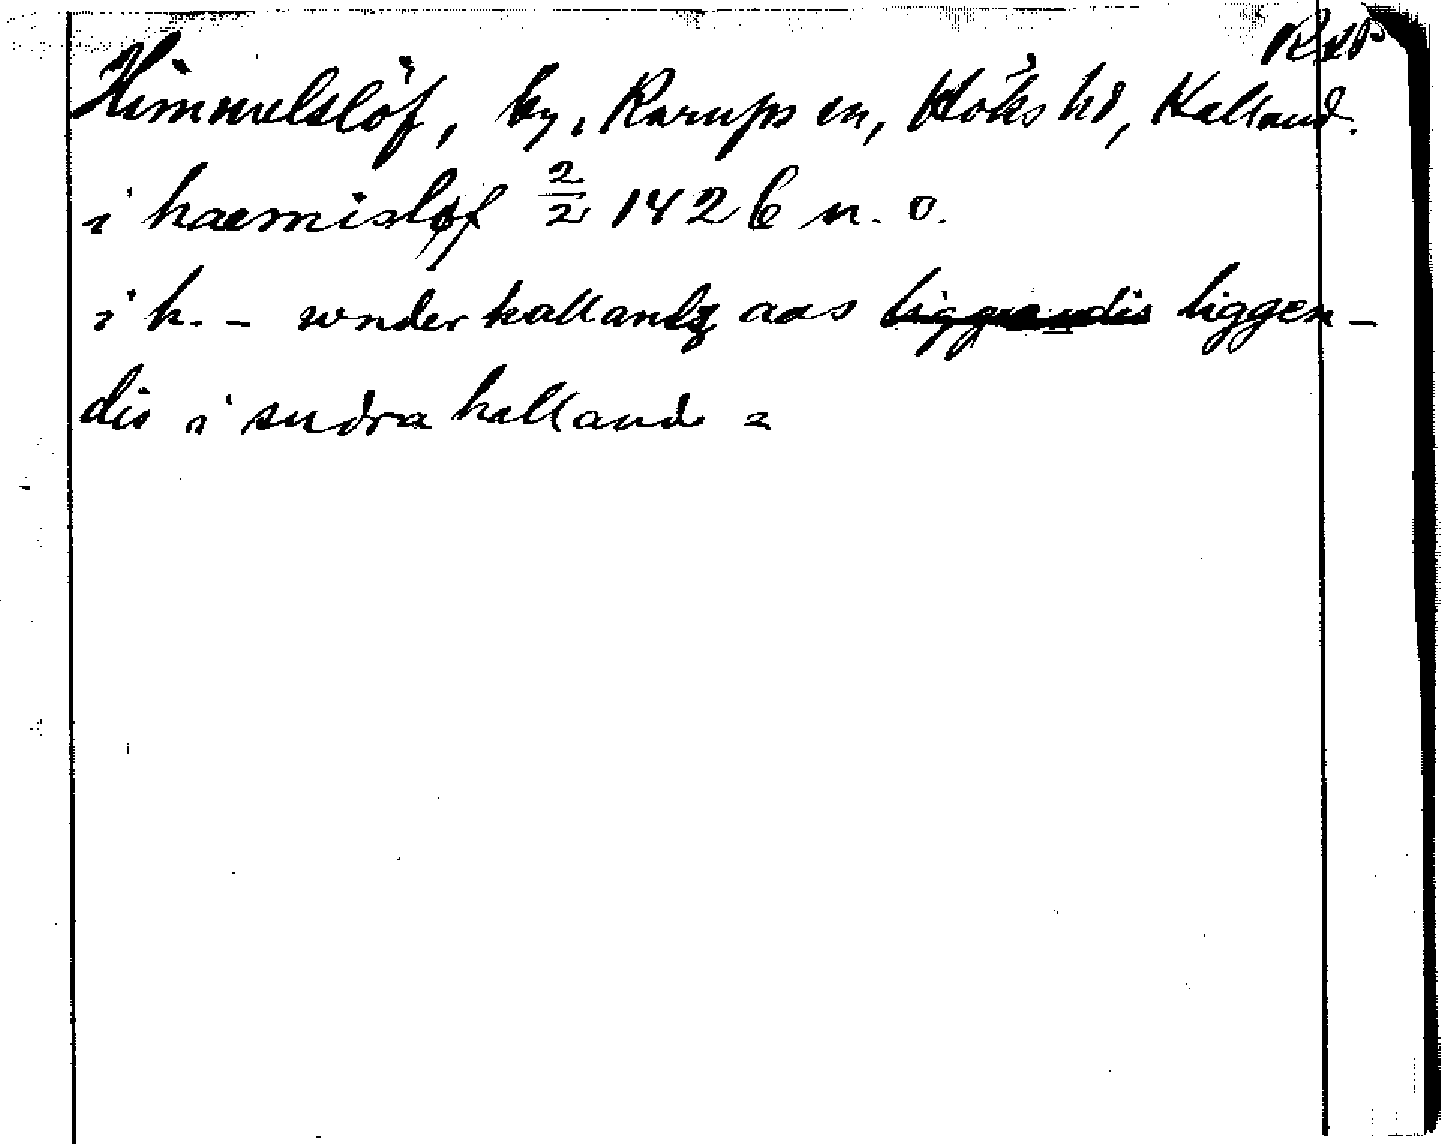 Rap
Himmelslöf, by, Karups sn, Höks hd, Halland.
i haemisløf 2/2 1426 n. o.
i h. - wnder hallandz aas liggendis liggen-
dis i sudra halland =